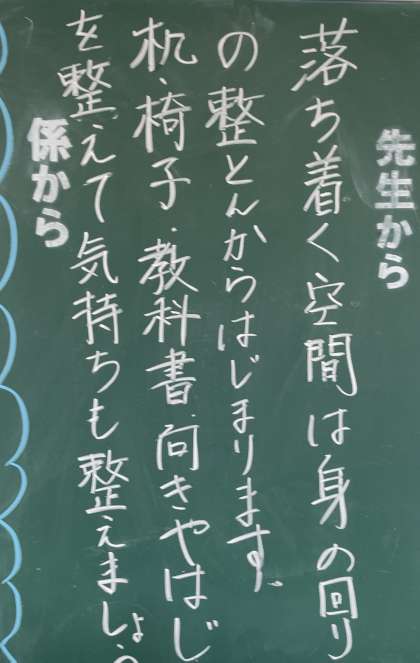 先生から
落ち着く空間は身の回り
の整とんからはじまります。
机・椅子・教科書・向きやはじ
を整えて気持ちも整えましょう
係から